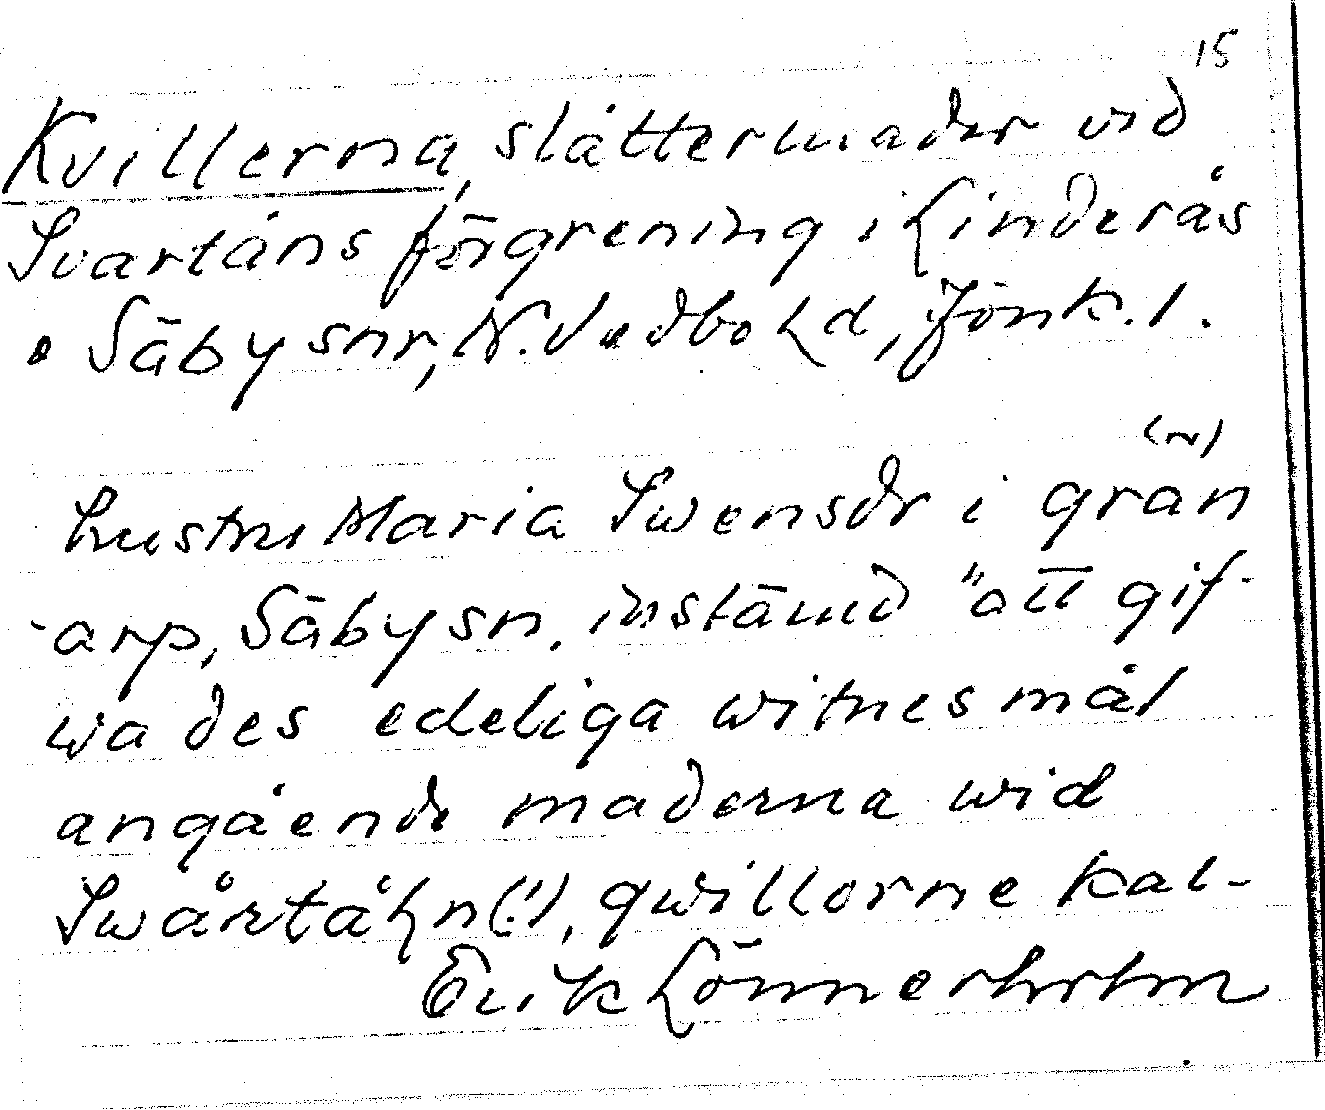 15
Kvillerna, slåttermader vid
Svartåns förgrening i Linderås
o Säby snr, N. Vedbo hd, Jönk. l.
(~)
hustru Maria Swensdr i grän
-arp, Säby sn, instämd "att gif-
wa des edeliga witnesmål
angående maderna wid
Swårtåhn(!), qwillorne kal-
Erik Lönnerholm